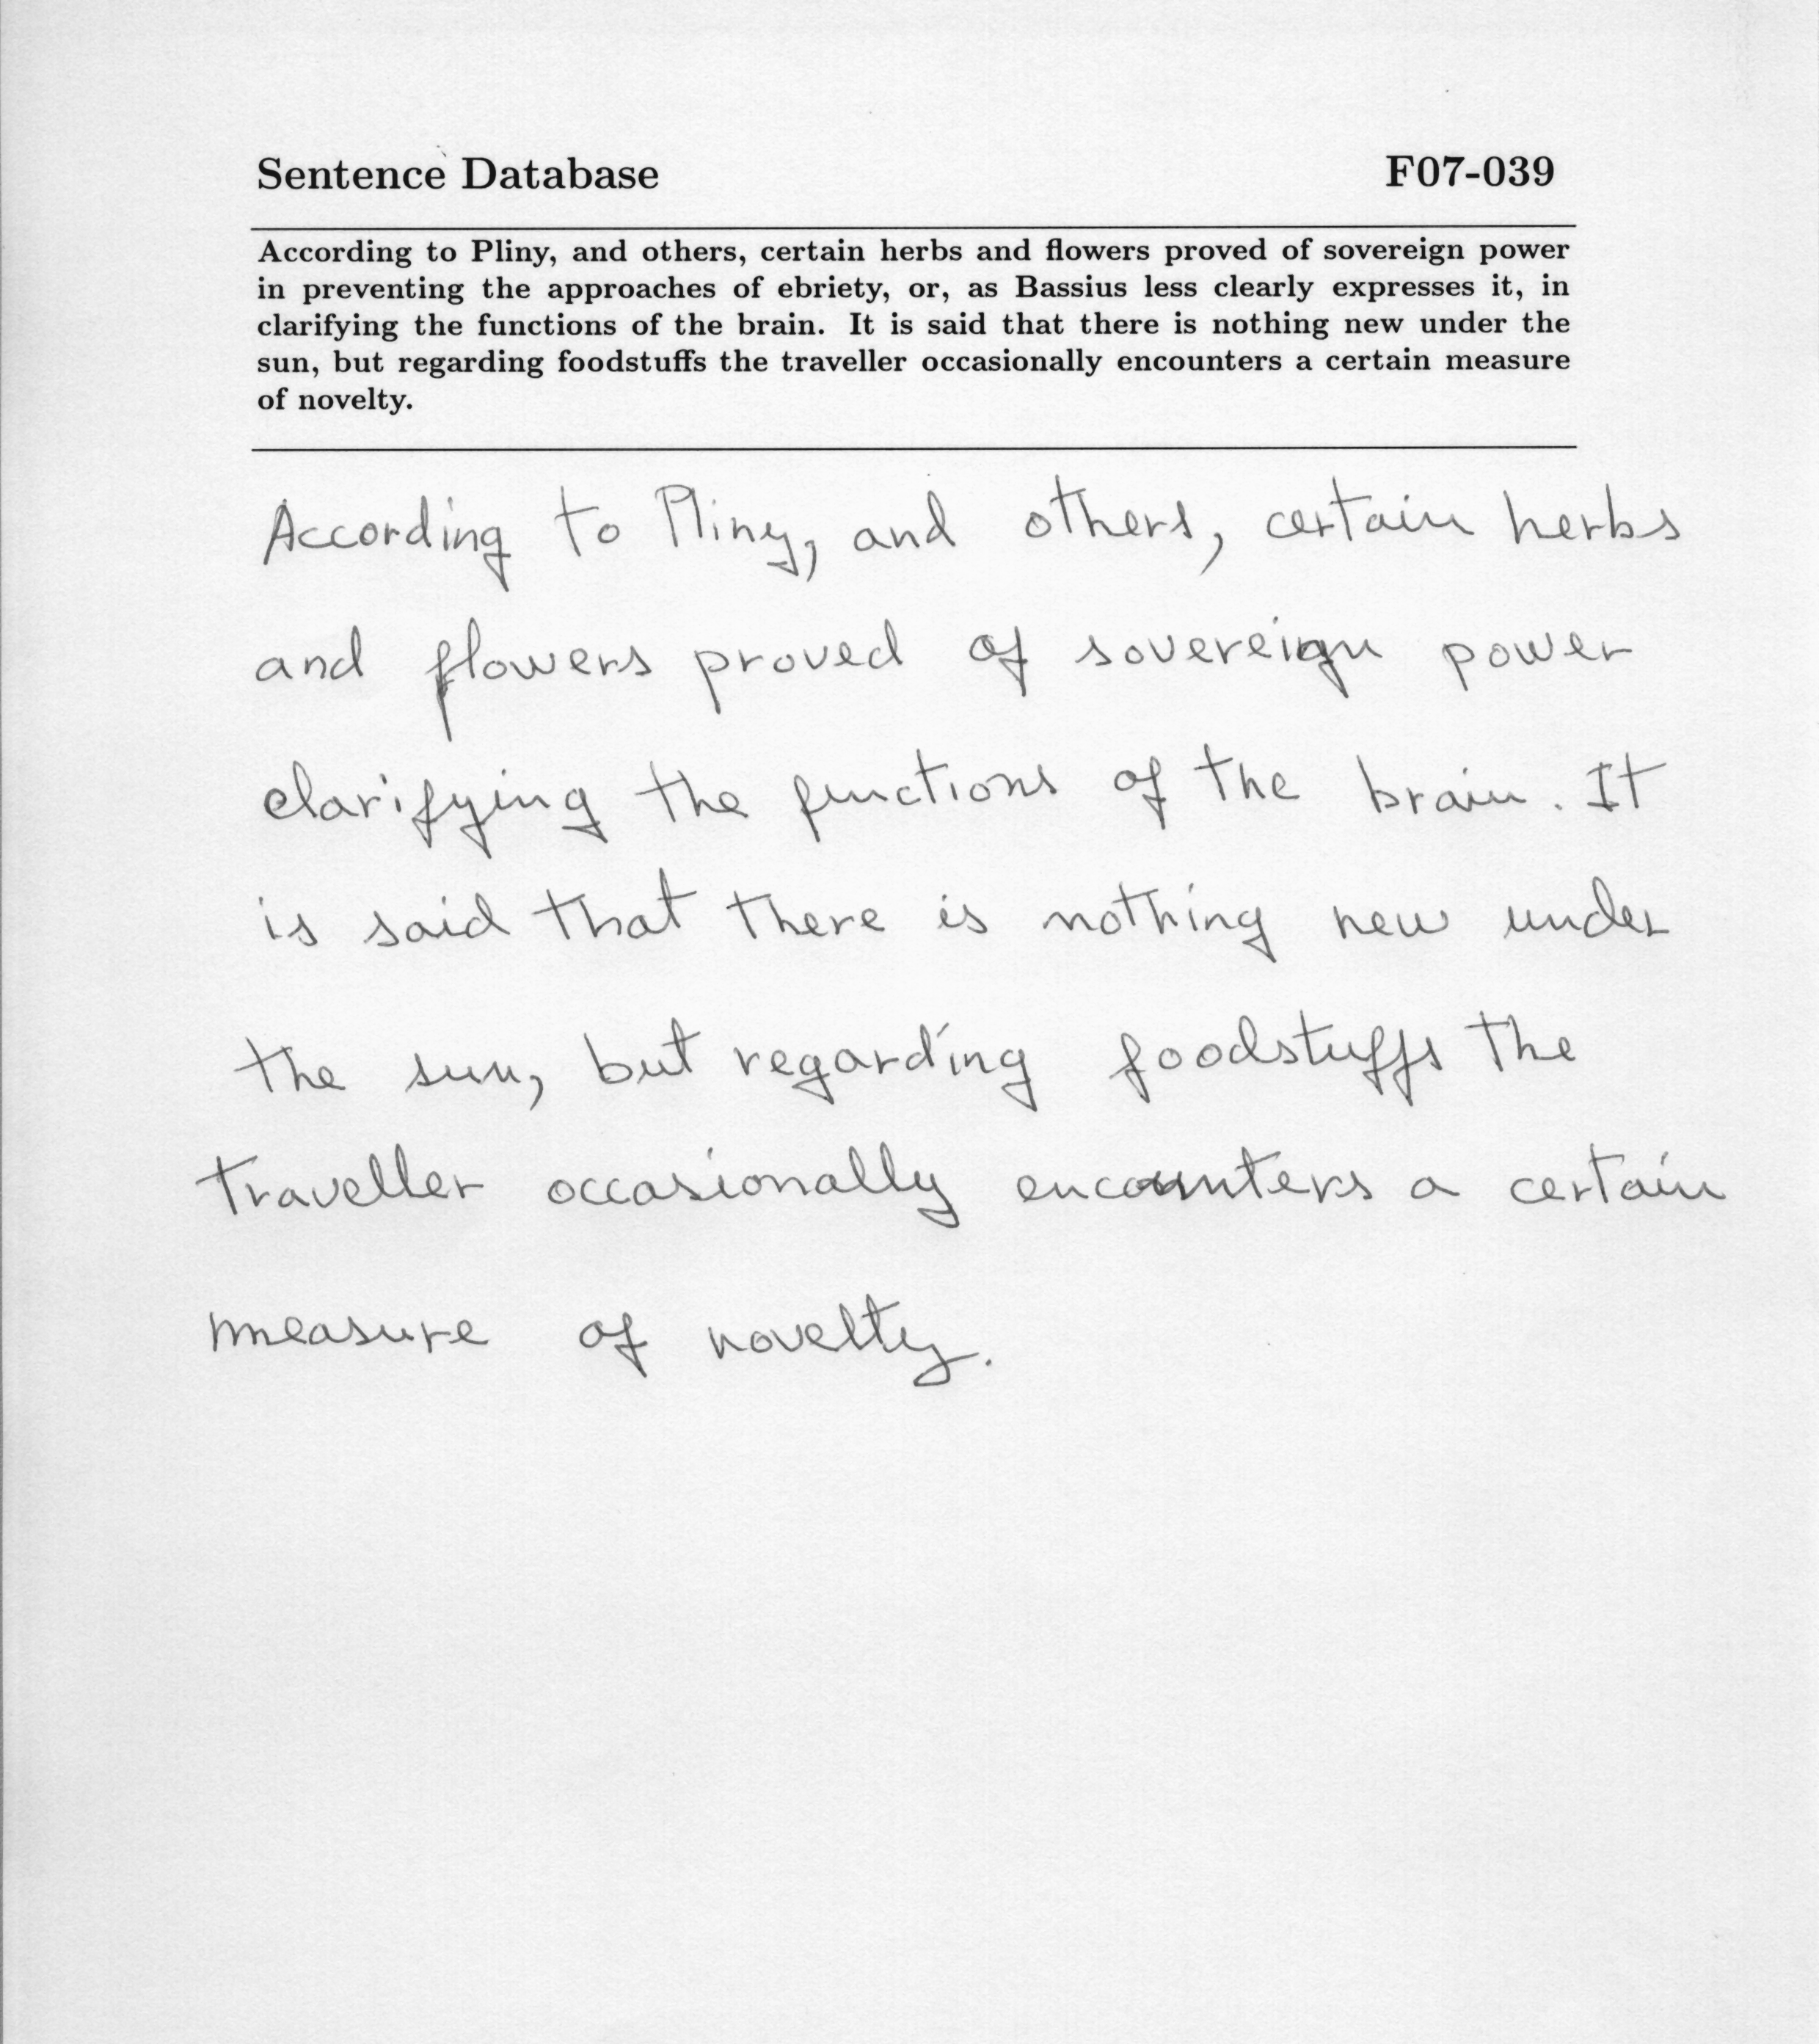 Sentence Database F07-039
According to Pliny, and others, certain herbs and flowers proved of sovereign power
in preventing the approaches of ebriety, or, as Bassius less clearly expresses it, in
clarifying the functions of the brain. It is said that there is nothing new under the
sun, but regarding foodstuffs the traveller occasionally encounters a certain measure
of novelty.
According to Pliny, and others, certain herbs
and flowers proved of sovereign power
clarifying the functions of the brain. It
is said that there is nothing new under
the sun, but regarding foodstuffs the
traveller occasionally encounters a certain
measure of novelty.